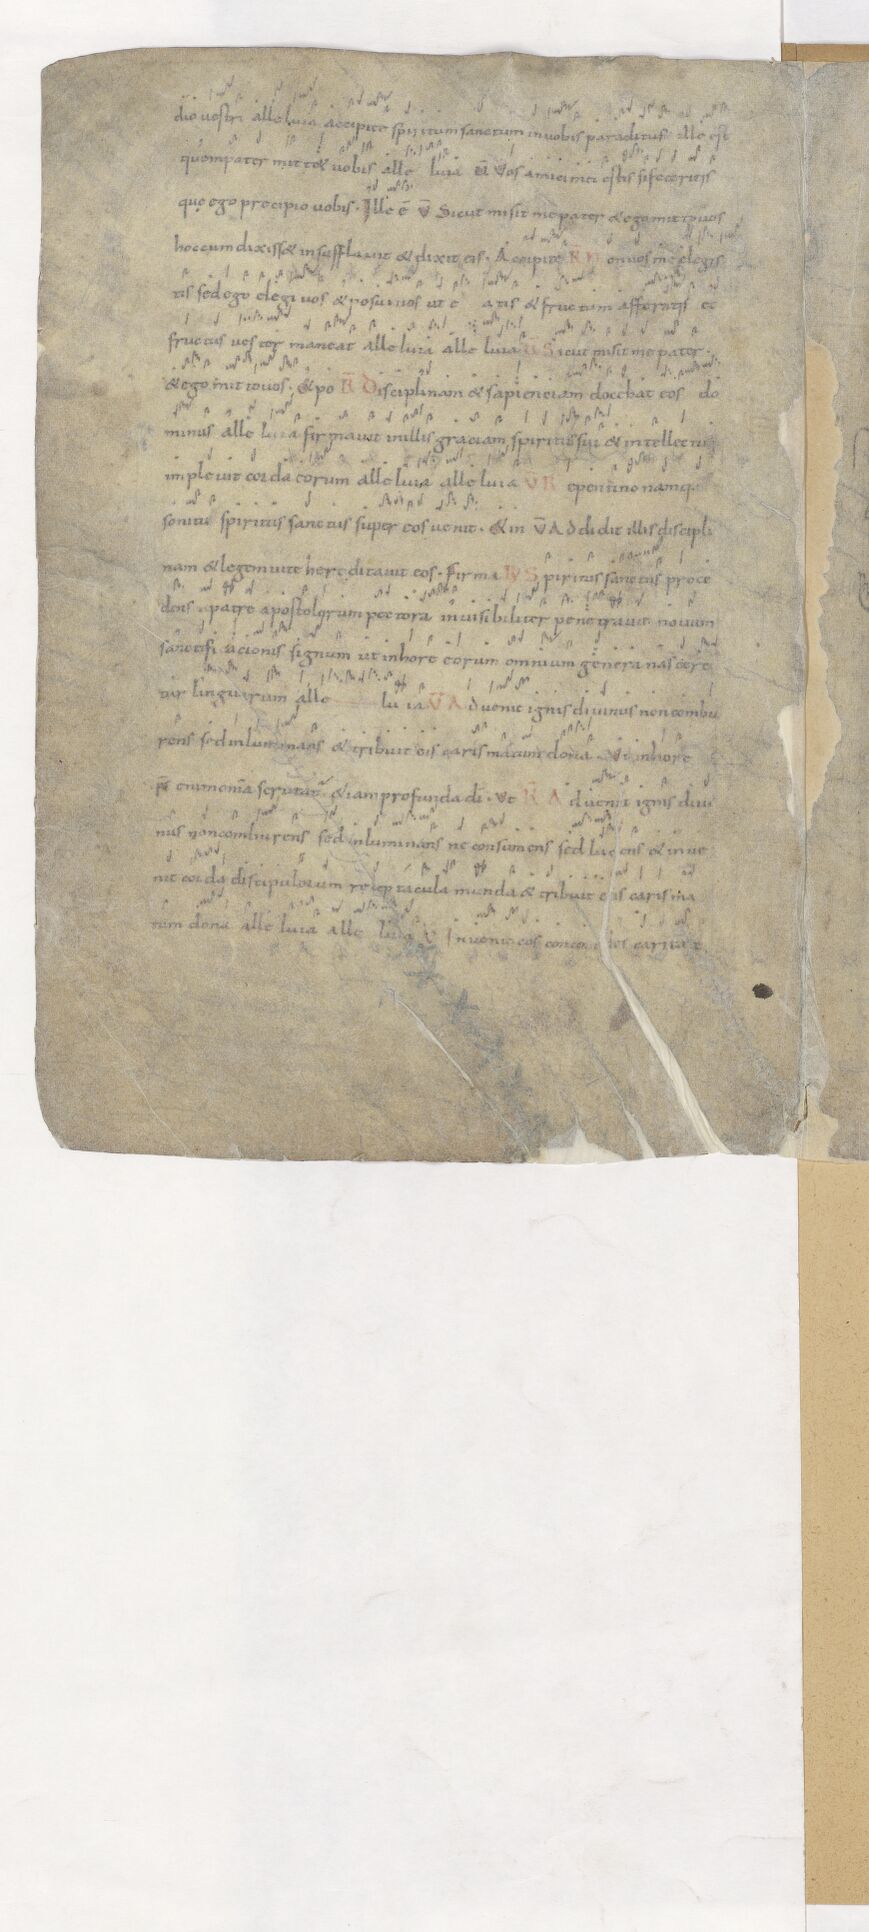 dio uostri alleluia accipite spiritum sanctum in uobis paraclitus ille est
quem pater mittet uobis alle luia V̄ Vos amici mei estis si feceritis
quę ego precipio uobis. Ille ē V̄ Sicut misit me pater & ego mitto uos
hoc cum dixiss& insufflauit & dixit eis. Accipite R̄ N on uos me elegis
tis sed ego elegi uos & posui uos ut e atis & fructum afferatis et
fructus uester maneat alleluia alleluia V̄ Sicut misit me pater.
& ego mitto uos. & po R̄ Disciplinam & sapienciam docebat eos do
minus alleluia firmauit in illis graciam spiritus sui & intellectu
impleuit corda eorum alleluia alleluia V̄ R epentino namq
sonitu spiritus sanctus super eos uenit. & in V̄ A ddidit illis discipli
nam & legem uite hereditauit eos. Firma S piritus sanctus proce
dens a patre apostolorum pectora inuisibiliter penetrauit nouum
sanctificacionis signum ut in hore eorum omnium genera nascere
tur linguarum alle lu ia V̄ A duenit ignis diuinus non combu
rens sed inluminans & tribuit eis carismatum dona. Vt in hore
enim omīa scrutat & iam profunda dī. Vt R̄ A duenit ignis diui
nus non comburens sed inluminans nec consumens sed lucens & inue
nit corda discipulorum receptacula munda & tribuit eis carisma
tum dona alleluia alle luia V Inuenit eos concordes caritate